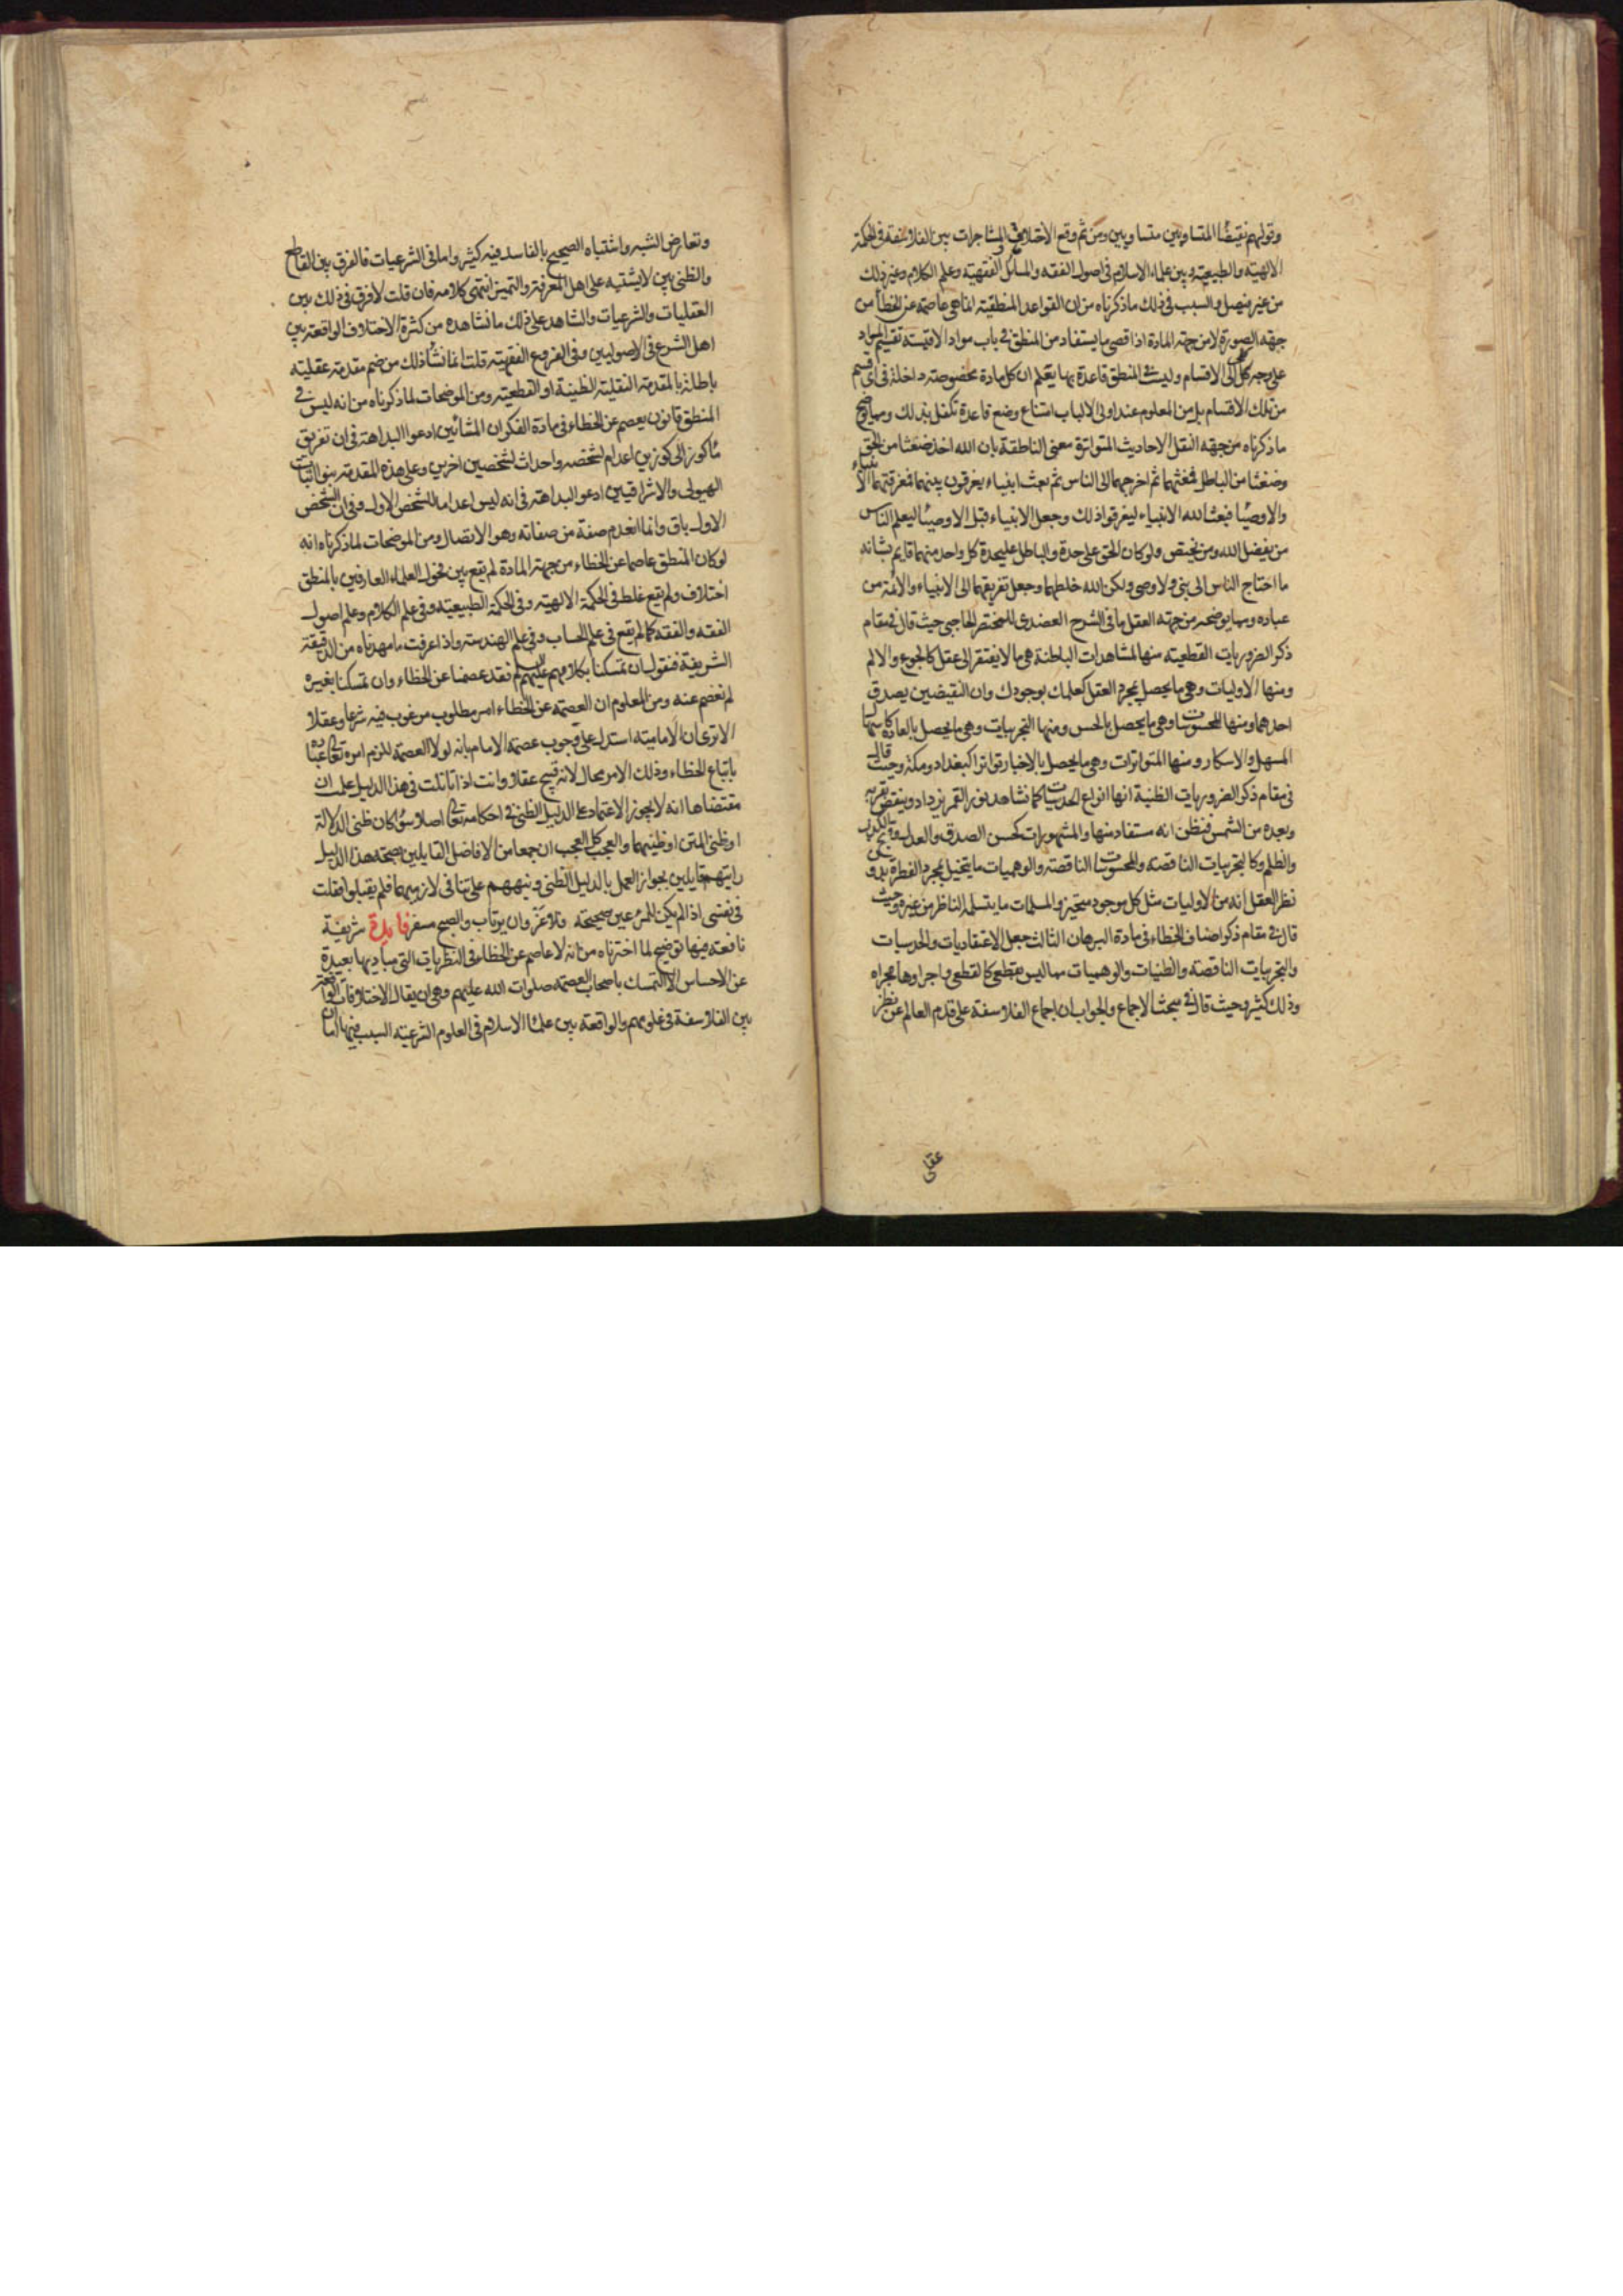 وقولهم نقيضا المتساويين متساويين ومن ثم وقع الاختلاف والمشاجرات بين الفلاسفة في الحكمة
الالهية والطبيعية وبين علماء الاسلام في اصول الفقه والمسائل الفقهية وعلم الكلام وغير ذلك
من غير فيصل والسبب في ذلك ما ذكرناه من ان القواعد المنطقية انما هي عاصمة عن الخطأ من
جهة الصورة لا من جهة المادة اذ اقصى ما يستفاد من المنطق في باب مواد الاقيسة تقسيم المواد
على وجه كلي الى الاقسام وليست في المنطق قاعدة بها يعلم ان كل مادة مخصوصة داخلة في اي قسم
من تلك الاقسام بل من المعلوم عند اولى الالباب امتناع وضع قاعدة تكفل بذلك ومما يوضح
ما ذكرناه من جهة النقل الاحاديث المتواترة معنى الناطقة بان الله اخذ ضغثا من الحق
وضغثا من الباطل فمغثهما ثم اخرجهما الى الناس ثم بعث انبياء يفرقون بينهما ففرقتهما الانبياء
والاوصيا فبعث الله الانبياء ليفرقوا ذلك وجعل الانبياء قبل الاوصيا ليعلم الناس
من يفضل الله ومن يختص ولو كان الحق على حدة والباطل عليحدة كل واحد منهما قايم بشانه
ما احتاج الناس الى نبي ولا وصي ولكن الله خلطهما وجعل تفريقهما الى الانبياء والائمة من
عباده ومما يوضحه من جهة العقل ما في الشرح العضدي للمختصر الحاجبي حيث قال في مقام
ذكر الضروريات القطعية منها المشاهدات الباطنة هي ما لا يفتقر الى عقل كالجوع والالم
ومنها الاوليات وهي ما يحصل بمجرد العقل كعلمك بوجودك وان النقيضين يصدق
احدهما ومنها المحسوسات وهي ما يحصل بالحس ومنها التجربيات وهي ما يحصل بالعادة كاسهال
المسهل والاسكار ومنها المتواترات وهي ما يحصل بالاخبار تواترا كبغداد ومكة وحيث قال
في مقام ذكر الضروريات الظنية انها انواع الحدسيات كما نشاهد نور القمر يزداد وينقص بقربه
وبعده من الشمس فنظن انه مستفاد منها والمشهورات كحسن الصدق والعدل وقبح الكذب
والظلم وكالتجربيات الناقصة والمحسوسات الناقصة والوهميات ما يتخيل بمجرد الفطرة بدون
نظر العقل انه من الاوليات مثل كل موجود متحيز والمسلمات ما يتسلمه الناظر من غيره وحيث
قال في مقام ذكر اصناف الخطاء في مادة البرهان الثالث جعل الاعتقاديات والحدسيات
والتجربيات الناقصة والظنيات والوهميات مما ليس بقطعي كالقطعي واجراوها مجراه
وذلك كثير وحيث قال في مبحث الاجماع والجواب ان اجماع الفلاسفة على قدم العالم عن نظر
عقلي
وتعارض الشبه واشتباه الصحيح بالفاسد فيه كثير واما في الشرعيات فالفرق بين القاطع
والظني بين لا يشتبه على اهل المعرفة والتمييز انتهى كلامه فان قلت لا فرق في ذلك بين
العقليات والشرعيات والشاهد على ذلك ما نشاهده من كثرة الاختلاف الواقعة بين
اهل الشرع في الاصوليين وفي الفروع الفقهية قلت انما نشأ ذلك من ضم مقدمة عقلية
باطلة بالمقدمة النقلية الظنية او القطعية ومن الموضحات لما ذكرناه من انه ليس في
المنطق قانون يعصم عن الخطاء في مادة الفكر ان المشائين ادعوا البداهة في ان تفريق
ماء كوز الى كوزين اعدام لشخصه واحداث لشخصين اخرين وعلى هذه المقدمة بنوا اثبات
الهيولى والاشراقيين ادعوا البداهة في انه ليس اعداما للشخص الاول وفي ان الشخص
الاول باق وانما انعدم صفة من صفاته وهو الاتصال ومن الموضحات لما ذكرناه انه
لو كان المنطق عاصما عن الخطاء من جهة المادة لم يقع بين فحول العلماء العارفين بالمنطق
اختلاف ولم يقع غلط في الحكمة الالهية وفي الحكمة الطبيعية وفي علم الكلام وعلم اصول
الفقه والفقه كما لم يقع في علم الحساب وفي علم الهندسة واذا عرفت ما مهدناه من الدقيقة
الشريفة فنقول ان تمسكنا بكلامهم عليهم السلم فقد عصمنا عن الخطاء وان تمسكنا بغيره
لم نعصم عنه ومن المعلوم ان العصمة عن الخطاء امر مطلوب مرغوب فيه شرعا وعقلا
الا ترى ان الامامية استدل على وجوب عصمة الامام بانه لولا العصمة للزم امره تعالى عباده
باتباع الخطاء وذلك الامر محال لانه قبيح عقلا وانت اذا تاملت في هذا الدليل علمت ان
مقتضاها انه لا يجوز الاعتماد على الدليل الظني في احكامه تعالى اصلا سواء كان ظني الدلالة
او ظني المتن او ظنيهما والعجب كل العجب ان جمعا من الافاضل القايلين بصحة هذا الدليل
رايتهم قايلين بجواز العمل بالدليل الظني ونبههم على تنافي لازميهما فلم يقبلوا فقلت
في نفسي اذا لم يكن للمرء عين صحيحة فلا غرو ان يرتاب والصبح مسفر فايدة شريفة
نافعة فيها توضيح لما اخترناه من انه لا عاصم عن الخطاء في النظريات التي مباديها بعيدة
عن الاحساس الا التمسك باصحاب العصمة صلوات الله عليهم وهي ان يقال الاختلافات الواقعة
بين الفلاسفة في علومهم والواقعة بين علماء الاسلام في العلوم الشرعية السبب فيها اما ان